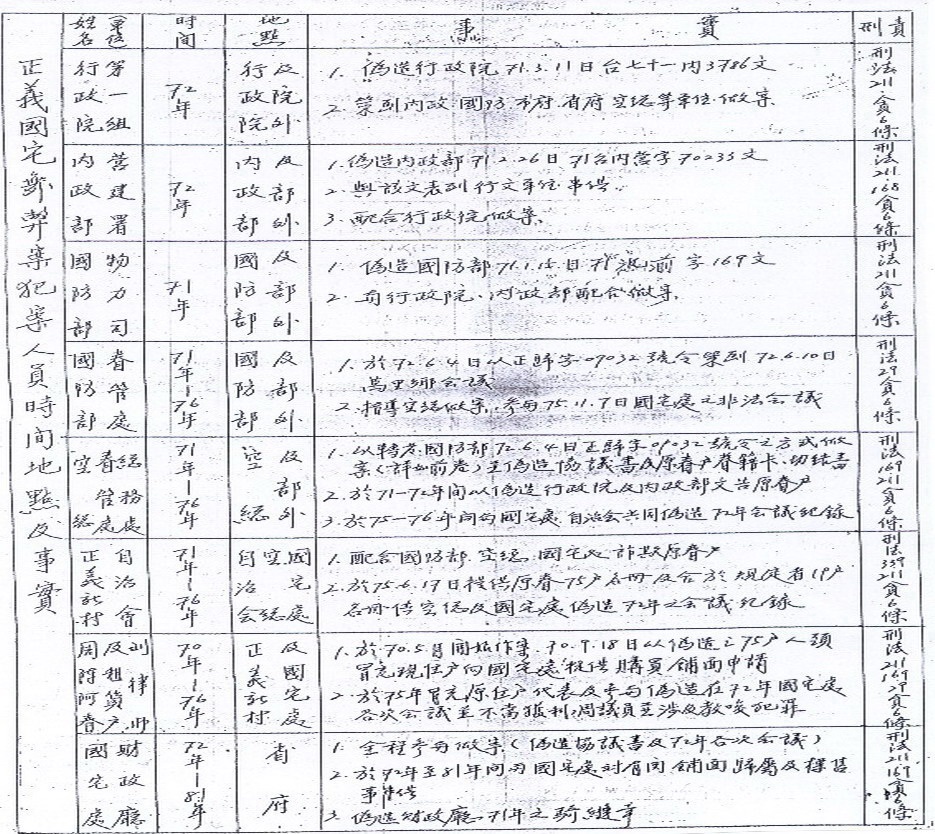 正義國宅弊案犯案人員時間地點及事實
單位姓名
時間
地點
事實
刑責
行政院
第一組
72年
行政院
及院外
1. 偽造行政院71.3.11日台七十一內3786文
2. 策劃內政.國防.市府.省府空總等單位做案
刑法211貪6條
內政部
營建署
72年
內政部
及部外
1. 偽造內政部71.2.26日71台內營字70233文
2. 與該文表列行文單位串供.
3. 配合行政院做案.
刑法211 168貪6條
國防部
物力司
71年
國防部
及部外
1. 偽造國防部71.1.15日
字169文
2. 有行政院.內政部配合做案.
刑法211貪6條
國防部
眷管處
71年-76年
國防部
及部外
1. 於72.6.4日以正歸字07032號令策劃72.6.10日
萬里鄉會議
2. 指導空總做案.參与75.11.7日國宅處之非法會議
刑法29貪6條
空總
眷管處
總務處
71年-76年
空總
及部外
1. 以轉发國防部72.6.4日正歸字07032號令之方式做
案(詳如前卷)至偽造協議書及原眷户眷籍卡.切結書
2. 於71-72年間以偽造行政院及內政部文告原眷户
3. 於75-76年間与國宅處.自治會共同偽造72年會議紀錄
刑法169 211貪6條
正義新村
自治會
71年-76年
自治會
空總
國宅處
1. 配合國防部.空總.國宅处詐欺原眷户
2. 於75.6.17日提供原眷75户名冊及合於規定者19户
名冊供空總及國宅處偽造72年之會議紀錄
刑法339 211貪6條
周陳阿春
及租賃户
訓律師
70年-76年
正義新村
及國宅處
1. 於70.5月開始作案.70.9.18日以偽造之75户人頭
冒充現住户向國宅處提供購買鋪面申請
2. 於75年冒充原住户代表及參与偽造在72年國宅處
各次會議至不當獲利.周議員至涉及教唆犯罪
刑法211 169 29貪6條
國宅處
財政廳
72年-81年
省府
1. 全程參与做案(偽造協議書及72年各次會議)
2. 於72年至81年間与國宅處對有関鋪面歸屬及標售
事串供
3. 偽造財政廳71年之騎縫章
刑法211 169貪6條